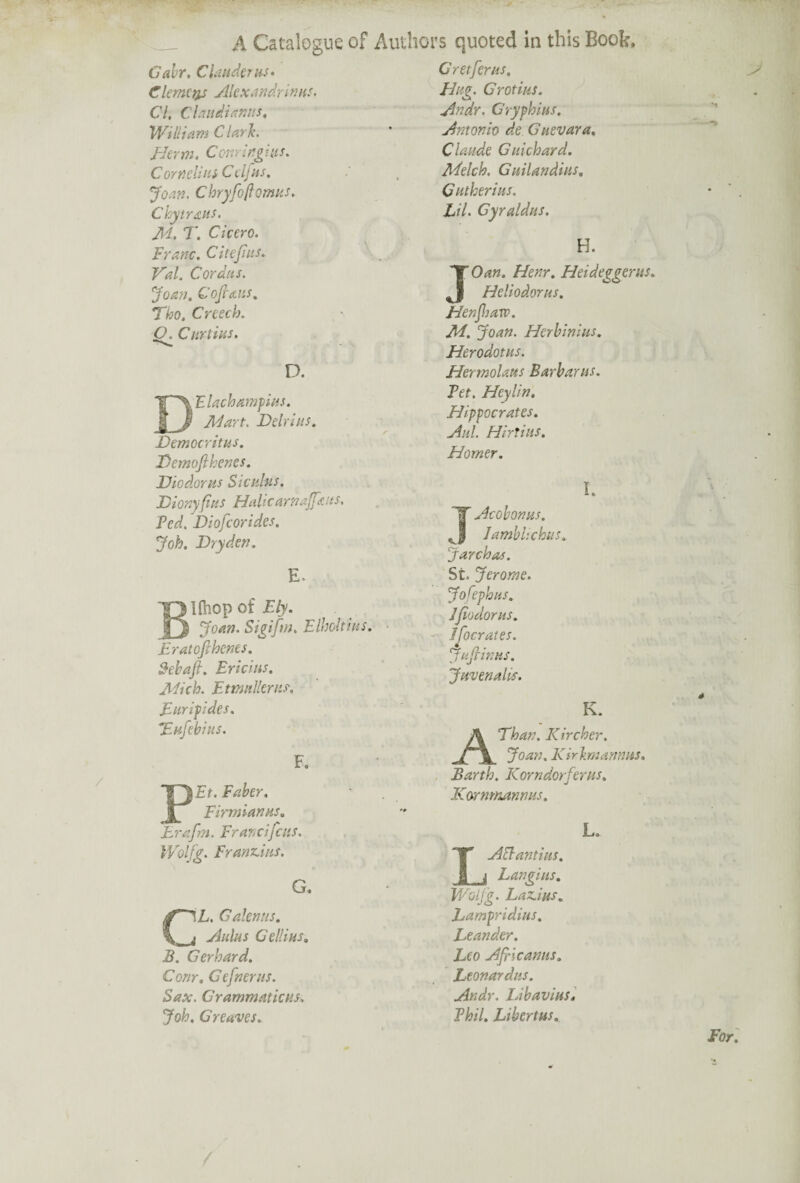 A Catalogue of Authors quoted in this Book,
Gabr. Clauderus.
Clemens Alexandrinus.
Cl. Claudianus,
William Clark.
Herm. Conringius.
Cornelius Celſus.
Joan. Chryſoſtomus.
Chytræus.
M. T. Cicero.
Franc. Citeſius.
Val. Cordus.
Joan. Coſtæus.
Tho. Creech.
Q. Curtius.
D.
DElachampius.
Mart. Delrius.
Democritus.
Demoſthenes.
Diodorus Siculus.
Dionyſius Halicarnaſſæus.
Ped. Dioſcorides.
Joh. Dryden.
E.
BIſhop of Ely.
Joan. Sigiſm. Elholtius.
Eratoſthenes.
Sebaſt. Ericius.
Mich. Etmullerus.
Euripides.
Euſebius.
F.
PEt. Faber.
Firmianus.
Eraſm. Franciſcus.
Wolfg. Franzius.
G.
CL. Galenus.
Aulus Gellius.
B. Gerhard.
Conr. Geſnerus.
Sax. Grammaticus.
Joh. Greaves.
Gretſerus.
Hug. Grotius.
Andr. Gryphius.
Antonio de Guevara.
Claude Guichard.
Melch. Guilandius.
Gutherius.
Lil. Gyraldus.
H.
JOan. Henr. Heideggerus.
Heliodorus.
Henſhaw.
M. Joan. Herbinius.
Herodotus.
Hermolaus Barbarus.
Pet. Heylin.
Hippocrates.
Aul. Hirtius.
Homer.
I.
JAcobonus.
Iamblichus.
Jarchas.
St. Jerome.
Joſephus.
Iſiodorus.
Iſocrates.
Juſtinus.
Juvenalis.
K.
AThan. Kircher.
Joan. Kirkmannus.
Barth. Korndorferus.
Kornmannus.
L.
LActantius.
Langius.
Wolfg. Lazius.
Lampridius.
Leander.
Leo Africanus.
Leonardus.
Andr. Libavius.
Phil. Libertus.
For.